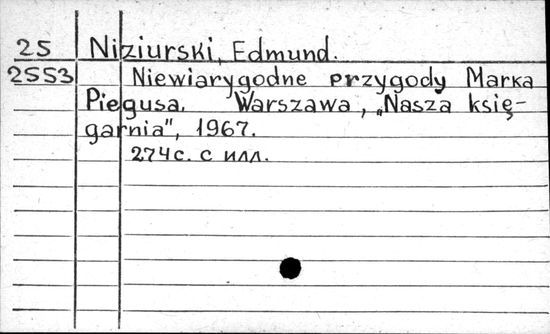 25 Niziurski, Edmund.
2553 Niewiarygodne przygody Marka
Piegusa. Warszawa, „Nasza księ-
garnia", 1967.
274с. с илл.